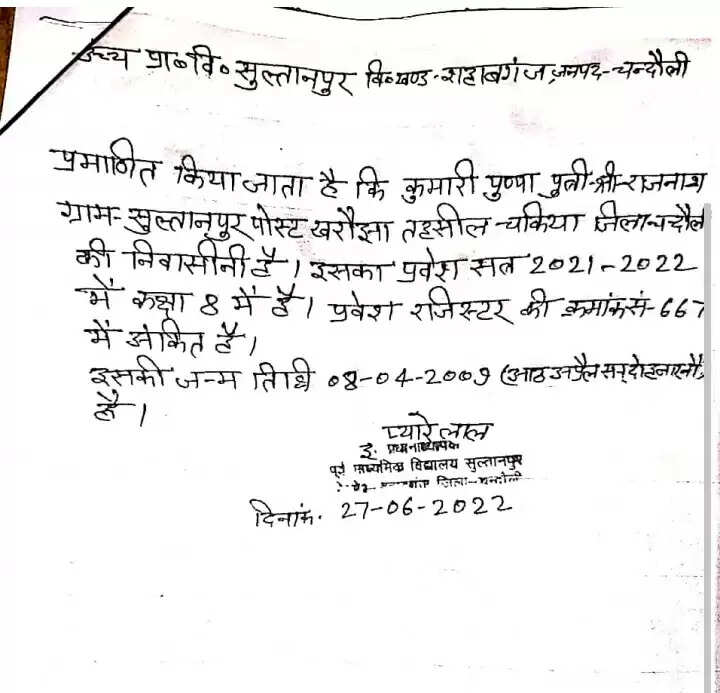 उच्च प्रा०वि० सुल्तानपुर वि०खण्ड-शहाबगंज,जनपद-चन्दौली
प्रमाणित किया जाता है कि कुमारी पुष्पा पुत्री श्री राजनाथ
ग्राम-सुल्तानपुर पोस्ट खरौझा तहसील-चकिया जिला-चन्दौली
की निवासीनी है। इसका प्रवेश सत्र 2021-2022
में कक्षा 8 में है। प्रवेश रजिस्टर की क्रमांक सं-667
में अंकित है।
इसकी जन्म तिथि 08-04-2009 (आठ अप्रैल सन् दो हजार नौ)
है।
प्यारे लाल
इ. प्रधानाध्यापक
पूर्व माध्यमिक विद्यालय सुल्तानपुर
जिला-चन्दौली
दिनांक. 27-06-2022